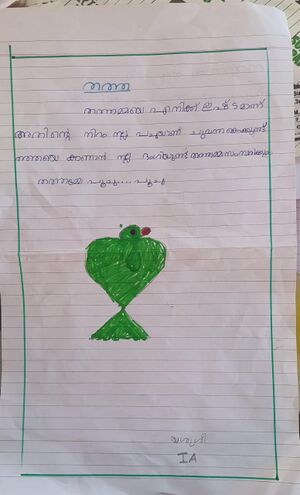 തത്ത
തത്തമ്മയെ എനിക്ക് ഇഷ്ടമാണ്
അതിന്റെ നിറം നല്ല പച്ചയാണ് ചുവന്ന കൊക്കുണ്ട്
തത്തയെ കാണാൻ നല്ല ഭംഗിയുണ്ട് തത്തമ്മ സംസാരിക്കും
തത്തമ്മേ പൂച്ച.... പൂച്ച
IA